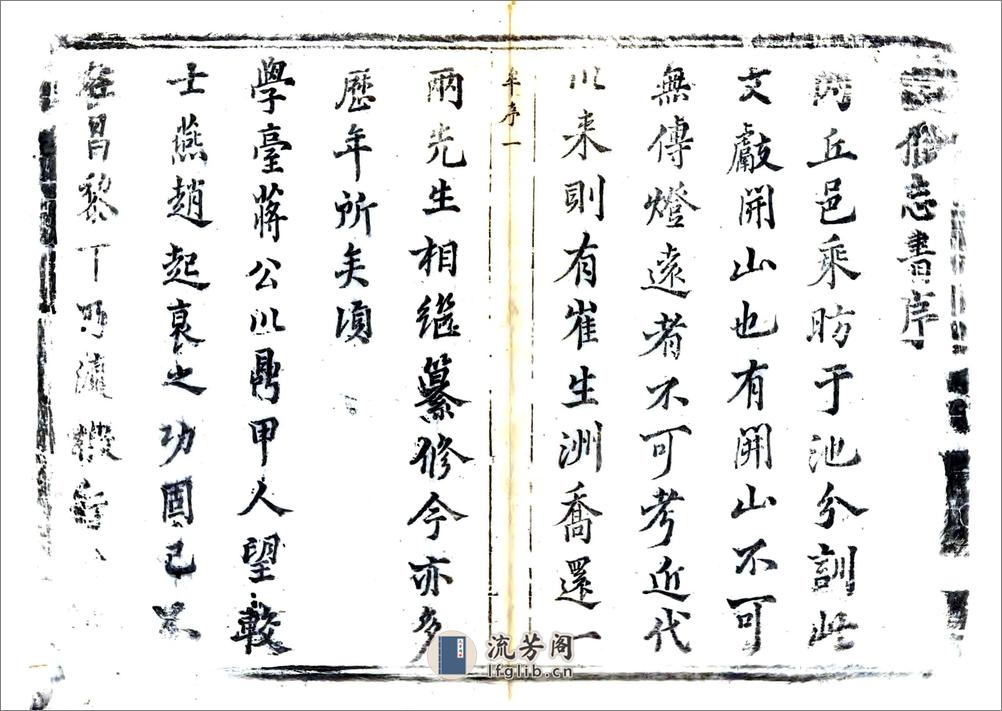 修志書序
丘邑乘昉于池分訓此
文獻開山也有開山不可
無傳燈遠者不可考近代
以来則有崔生洲喬還一
牟序一
兩先生相繼纂修今亦多
歷年所矣頃
學臺蔣公以鼎甲人望較
士燕趙起衰之功固已不
昌黎下乃瀛
流芳阁
lfglib.cn